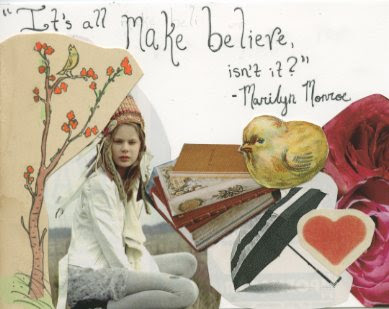 "It's all Make believe,
isn't it?"
-Marilyn Monroe